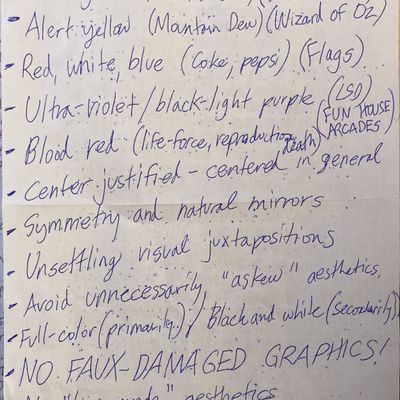 - Alert yellow (Mantain Dew) (Wizard of Oz)
- Red, white, blue (Coke, pepsi) (Flags)
- Ultra-violet/black-light purple (LSD)
(FUN HOUSE ARCADES)
- Blood red (life-force, reproduction, death)
- Center justified - centered in general
- Symmetry and natural mirrors
- Unsettling visual juxtapositions
- Avoid unnecessarily "askew" aesthetics.
- Full-color (primarily.) / Black and white (secodarily)
- NO FAUX-DAMAGED GRAPHICS!
aesthetics